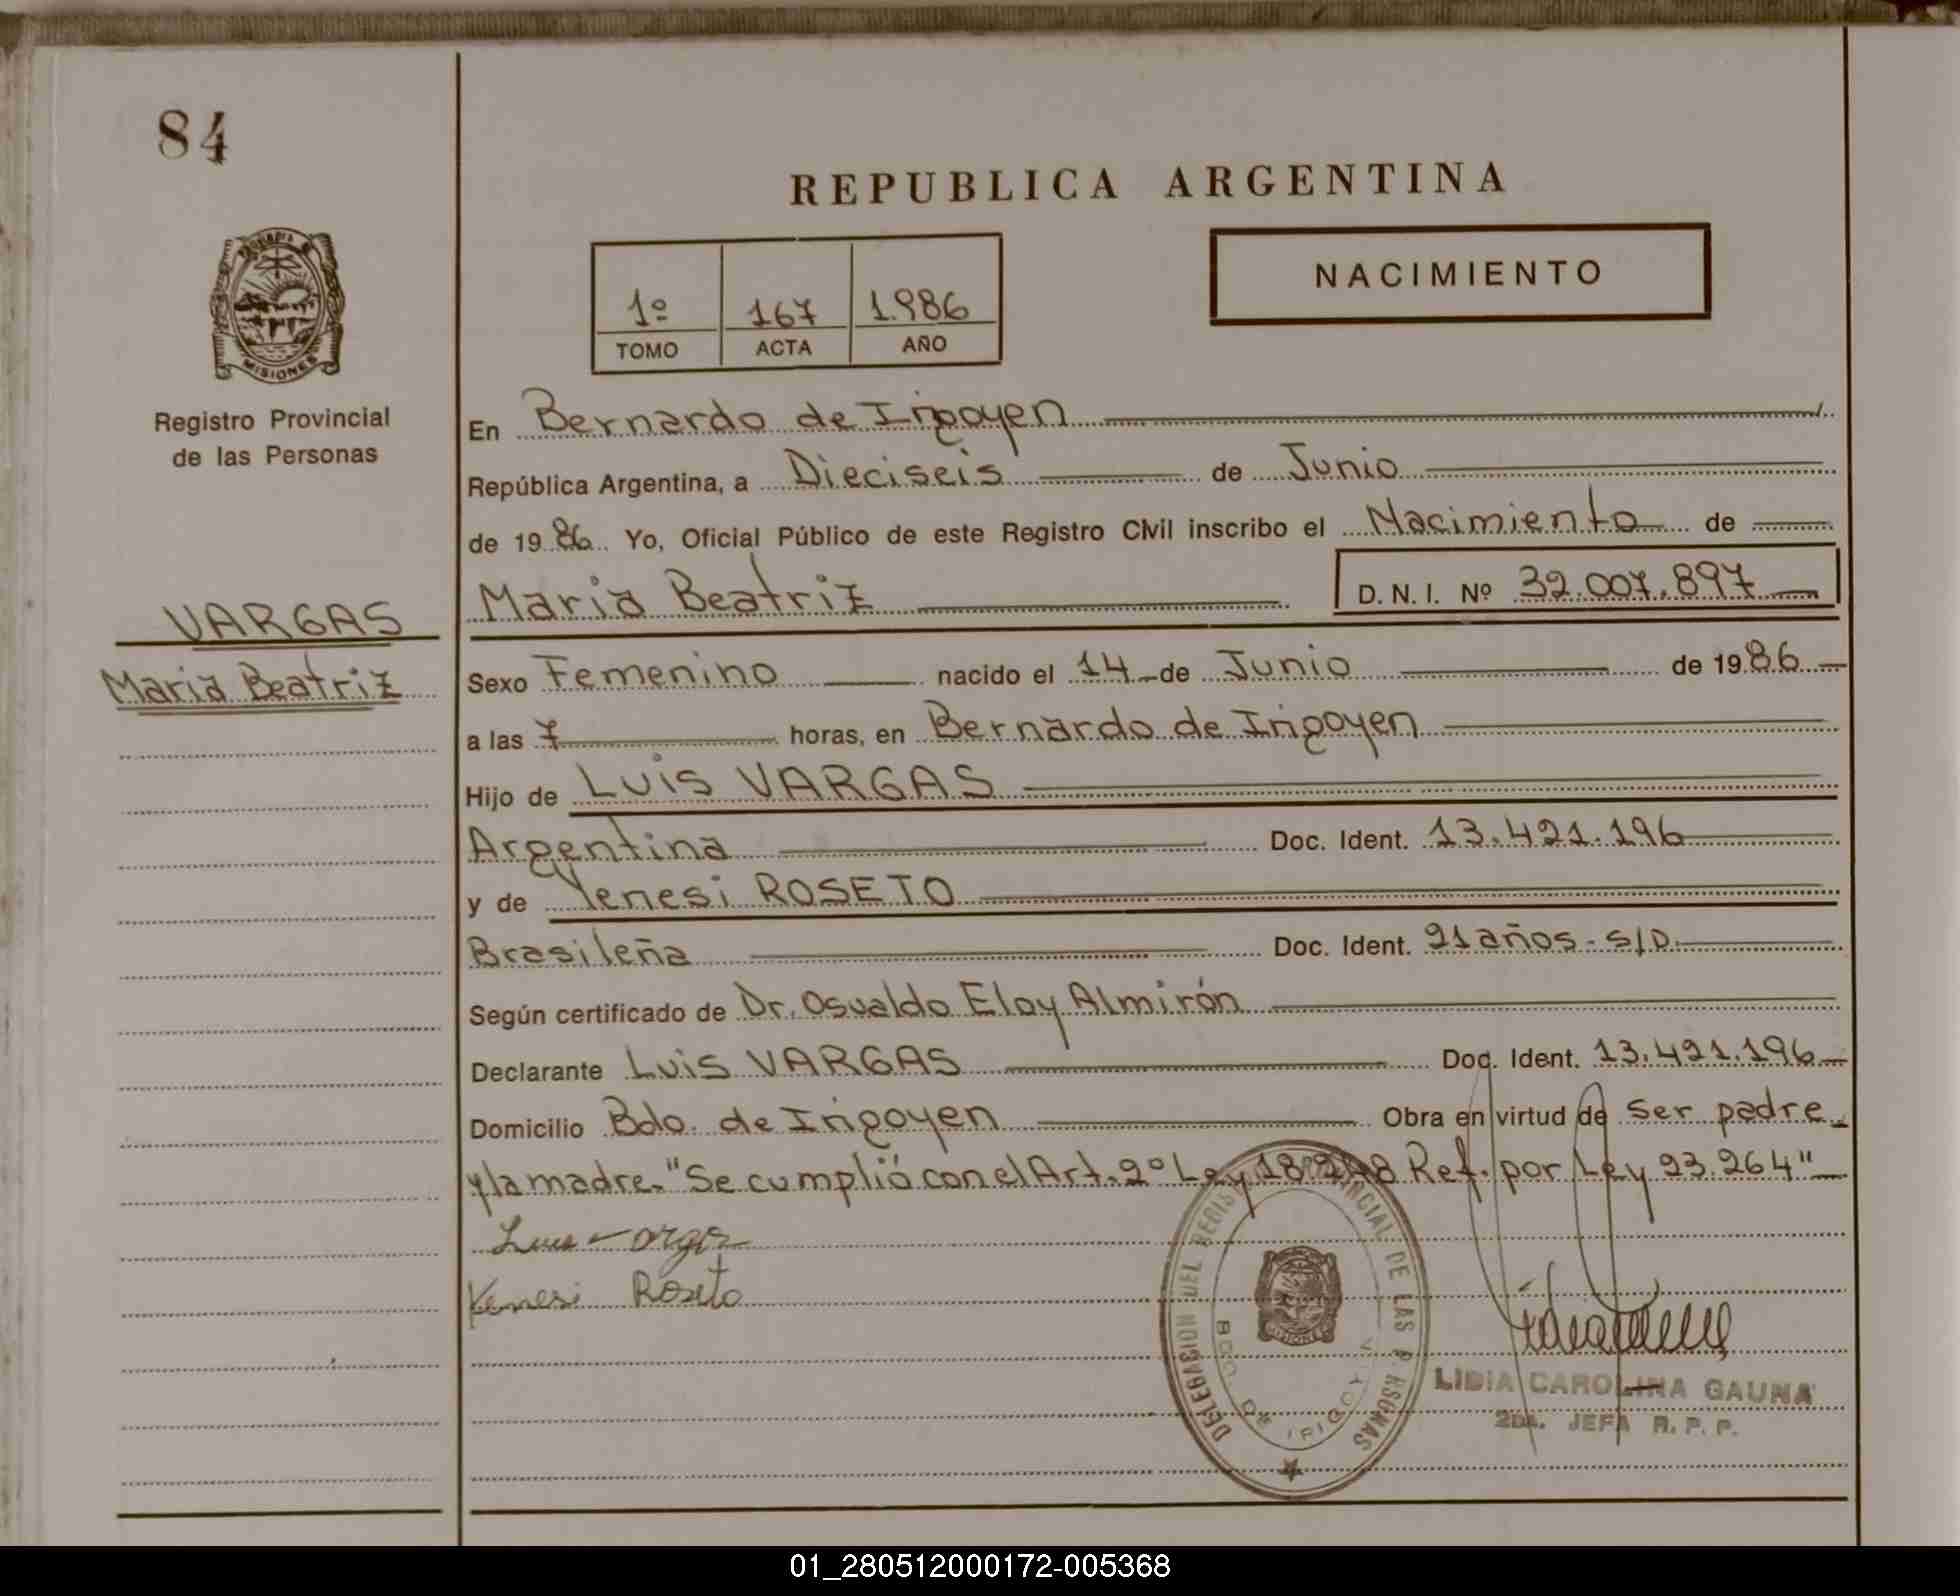 84
REPUBLICA ARGENTINA
NACIMIENTO
1º 167 1.986
TOMO ACTA AÑO
MISIONES
Registro Provincial
de las Personas
VARGAS
Maria Beatriz
En Bernardo de Irigoyen
República Argentina, a Dieciseis de Junio
de 1986 Yo, Oficial Público de este Registro Civil inscribo el Nacimiento de
Maria Beatriz D.N.I. Nº 32.007.897
Sexo Femenino nacido el 14 de Junio de 1986
a las 7 horas, en Bernardo de Irigoyen
Hijo de Luis VARGAS
Argentina Doc. Ident. 13.421.196
y de Yenesi ROSETO
Brasileña Doc. Ident. 21 años - S/D.
Según certificado de Dr. Osvaldo Eloy Almirón
Declarante Luis VARGAS Doc. Ident. 13.421.196
Domicilio Bdo. de Irigoyen Obra en virtud de ser padre
y la madre. "Se cumplió con el Art. 2º Ley 18.248 Ref. por Ley 23.264"
Yenesi Roseto
DELEGACION DEL REGISTRO PROVINCIAL DE LAS PERSONAS
BDO. DE IRIGOYEN
MISIONES
LIDIA CAROLINA GAUNA
2da. JEFA R.P.P.
01_280512000172-005368